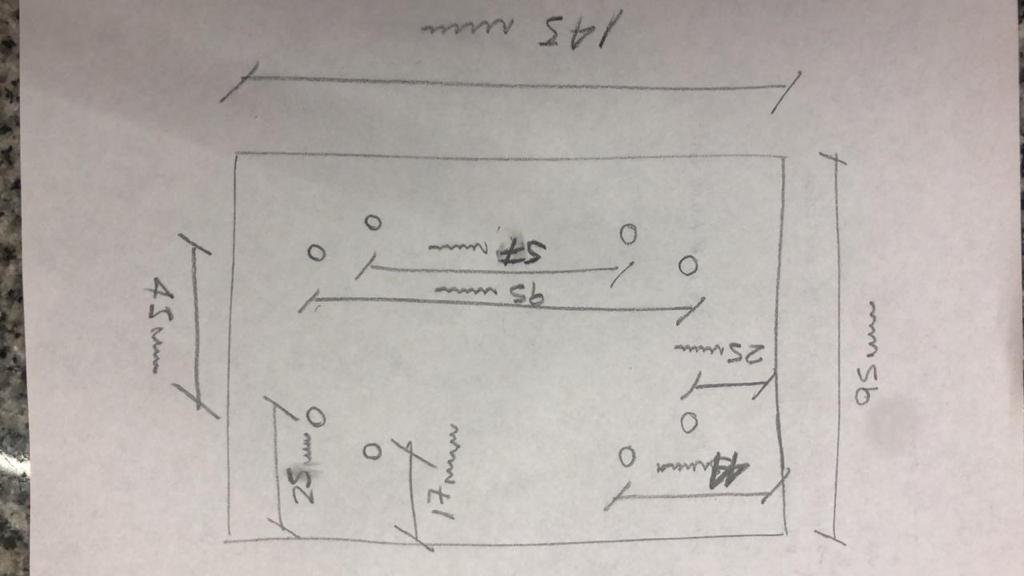 145 mm
57 mm
95 mm
45 mm
25 mm
95 mm
25 mm
44 mm
17 mm